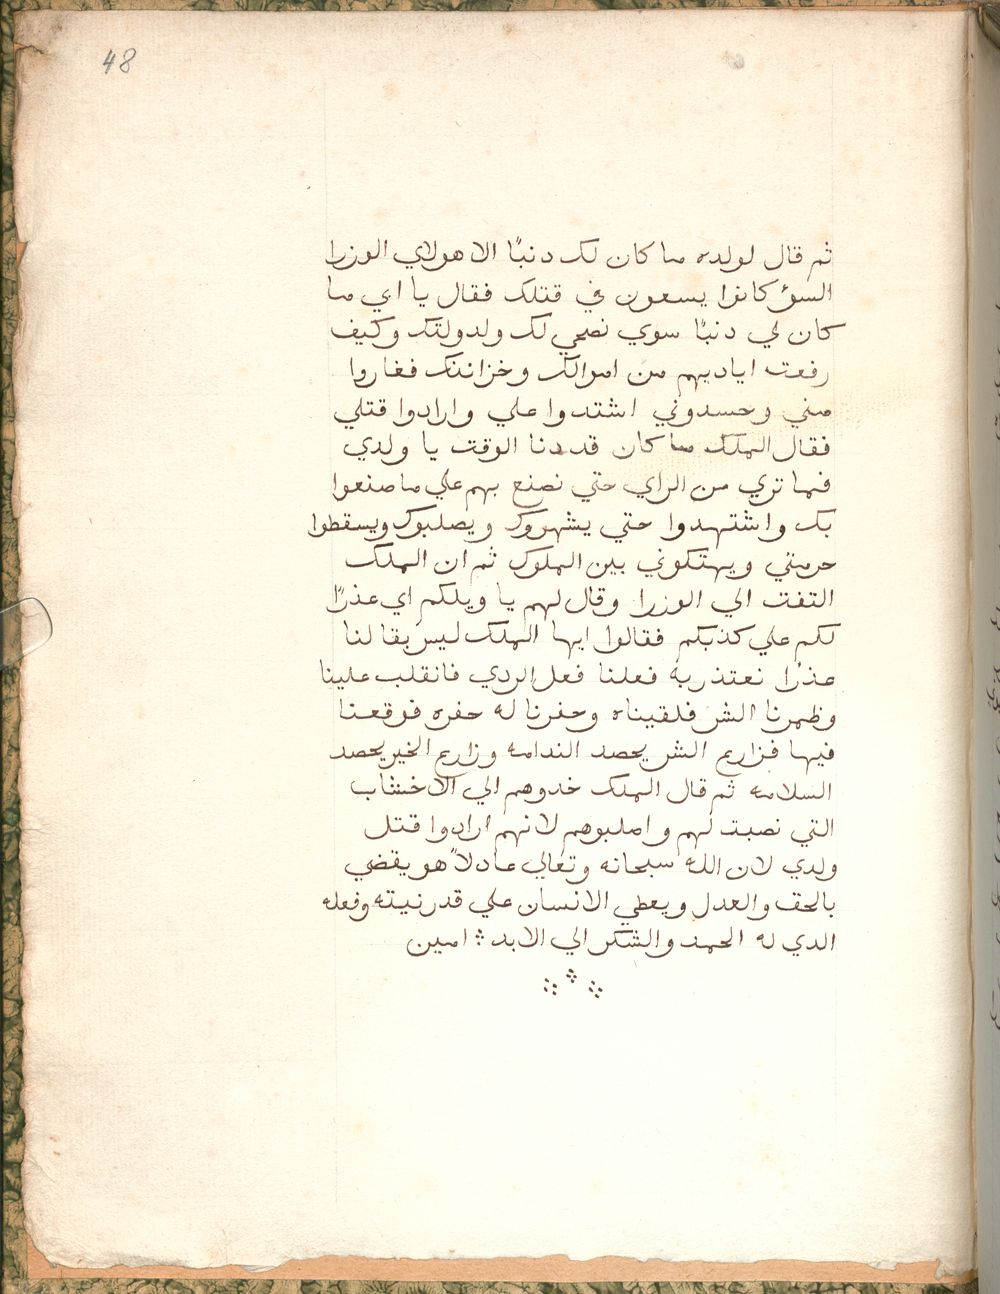 48
ثم قال لولده ما كان لك دنبًا الا هولاي الوزرا
السوْ كانوا يسعون في قتلك فقال يا ابي ما
كان لي دنبًا سوي نصحي لك ولدولتك وكيف
رفعت اياديهم من اموالك وخزانتك فغاروا
مني وحسدوني اشتدوا علي وارادوا قتلي
فقال الملك ما كان قد دنا الوقت يا ولدي
فما تري من الراي حتي نصنع بهم علي ما صنعوا
بك واشتهدوا حتي يشهروك ويصلبوك ويسقطوا
حرمتي ويهتكوني بين الملوك ثم ان الملك
التفت الي الوزرا وقال لهم يا ويلكم اي عذرًا
لكم علي كذبكم فقالوا ايها الملك ليس بقا لنا
عذرًا نعتذر به فعلنا فعل الردي فانقلب علينا
وظمرنا الشر فلقيناه وحفرنا له حفره فوقعنا
فيها فزارع الشر يحصد الندامه وزارع الخير يحصد
السلامه ثم قال الملك خدوهم الي الاخشاب
التي نصبت لهم واصلبوهم لانهم ارادوا قتل
ولدي لان الله سبحانه وتعالي عادلاً هو يقضي
بالحق والعدل ويعطي الانسان علي قدر نيته وفعله
الدي له الحمد والشكر الي الابد ؞ امين